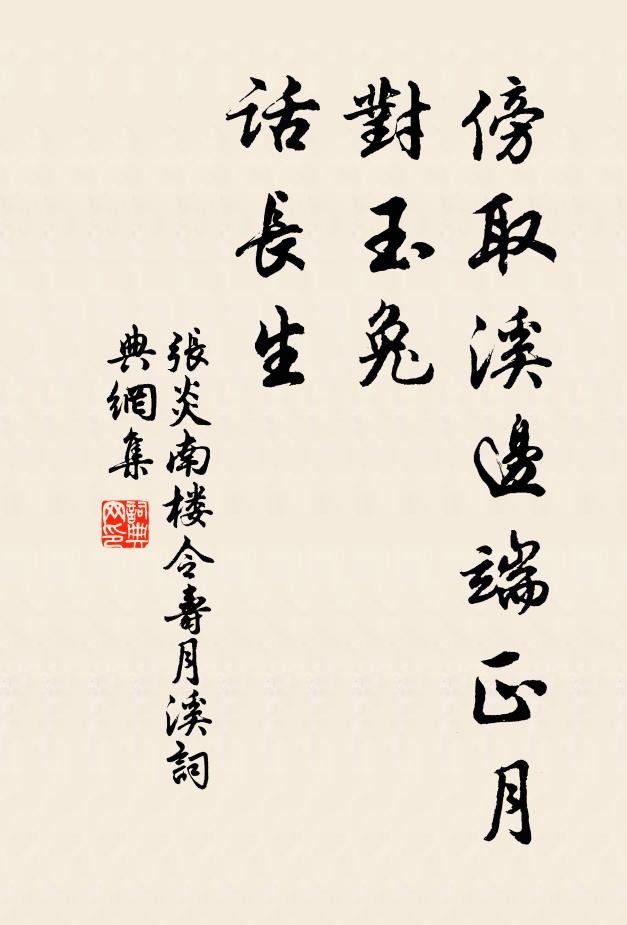 傍取溪邊端正月
對玉兔
話長生
張炎南楼令壽月溪詞
典網集
詞典网印